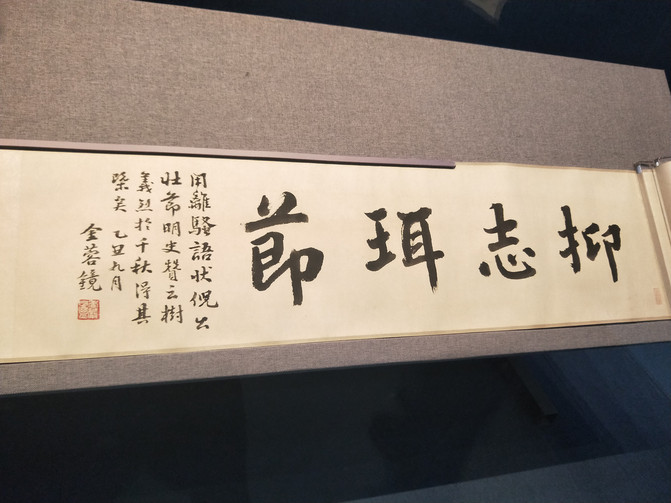 抑志珥節
用離騷語狀倪公
壯節明史贊云樹
義烈於千秋得其
槩矣 乙丑九月
金蓉鏡